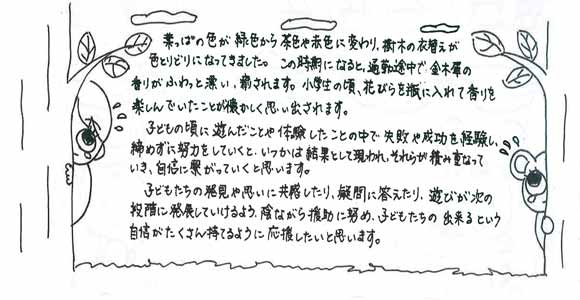 葉っぱの色が緑色から茶色や赤色に変わり、樹木の衣替えが
色とりどりになってきました。この時期になると、通勤途中で金木犀の
香りがふわっと漂い、癒されます。小学生の頃、花びらを瓶に入れて香りを
楽しんでいたことが懐かしく思い出されます。
子どもの頃に遊んだことや体験したことの中で失敗や成功を経験し、
諦めずに努力をしていくと、いつかは結果として現われ、それらが積み重なって
いき、自信に繋がっていくと思います。
子どもたちの発見や思いに共感したり、疑問に答えたり、遊びが次の
段階に発展していけるよう、陰ながら援助に努め、子どもたちの出来るという
自信がたくさん持てるように応援したいと思います。